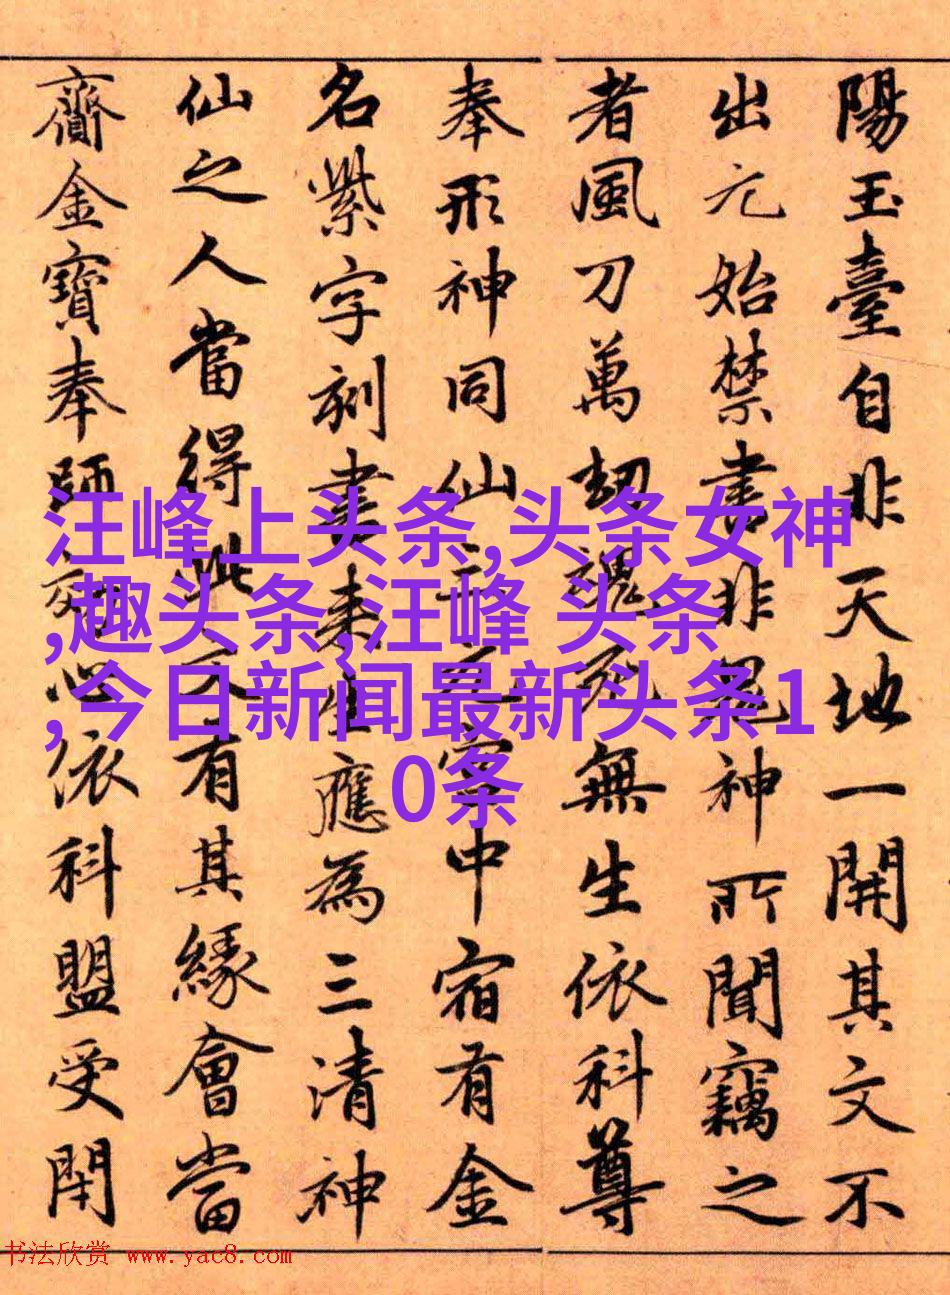 陽玉臺自非天地一開其文不
出元始禁書非鬼神所聞竊之
者風刀萬劫魂死無生依科尊
奉形神同仙三元宮中宿有金
名紫字刻書來生應為三清神
仙之人當得此文有其緣會當
齎金寶奉師心依科盟受閇
汪峰上头条,头条女神
,趣头条,汪峰 头条
,今日新闻最新头条1
0条
书法欣赏 www.yac8.com